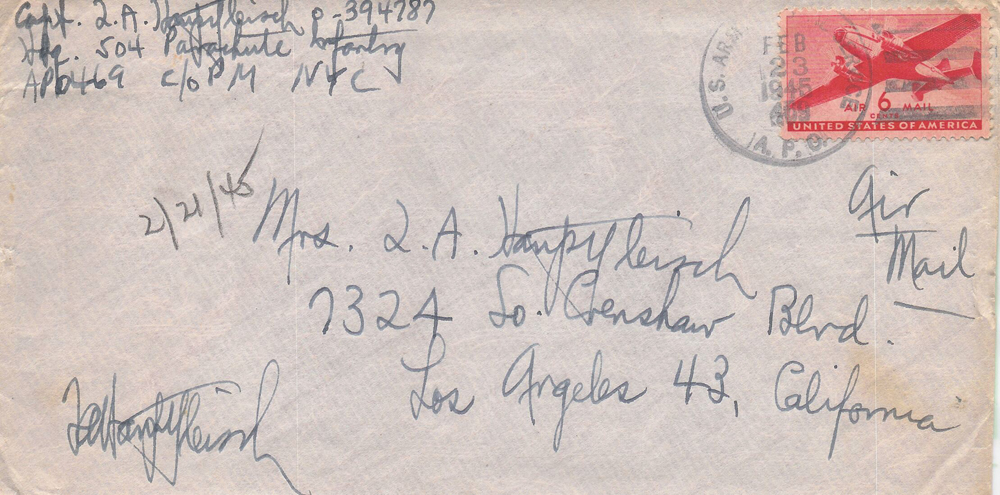 Capt. L.A. Hauptfleisch O-394787
Hdq. 504 Parachute Infantry
APO 469 c/o PM NYC
U.S. ARMY
FEB
23
1945
A.P.O.
AIR 6 MAIL
CENTS
UNITED STATES OF AMERICA
2/21/45
Mrs. L.A. Hauptfleisch
7324 So. Crenshaw Blvd.
Los Angeles 43, California
Air
Mail
LAHauptfleisch